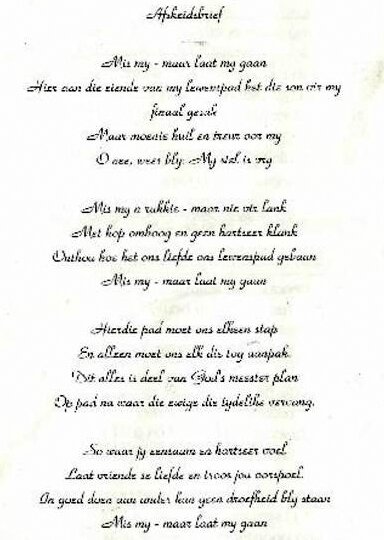 Afskeidsbrief
Mis my - maar laat my gaan
Hier aan die einde van my lewenspad het die son vir my
finaal gesak
Maar moenie huil en treur oor my
O nee, wees bly: My siel is vry
Mis my n rukkie - maar nie vir lank
Met kop omhoog en geen hartseer klank
Onthou hoe het ons liefde ons lewenspad gebaan
Mis my - maar laat my gaan
Hierdie pad moet ons elkeen stap
En alleen moet ons elk die tog aanpak.
Dit alles is deel van God's meester plan
Op pad na waar die ewige die tydelike vervang.
So waar jy eensaam en hartseer voel
Laat vriende se liefde en troos jou oorspoel.
In goed doen aan ander kan geen droefheid bly staan
Mis my - maar laat my gaan